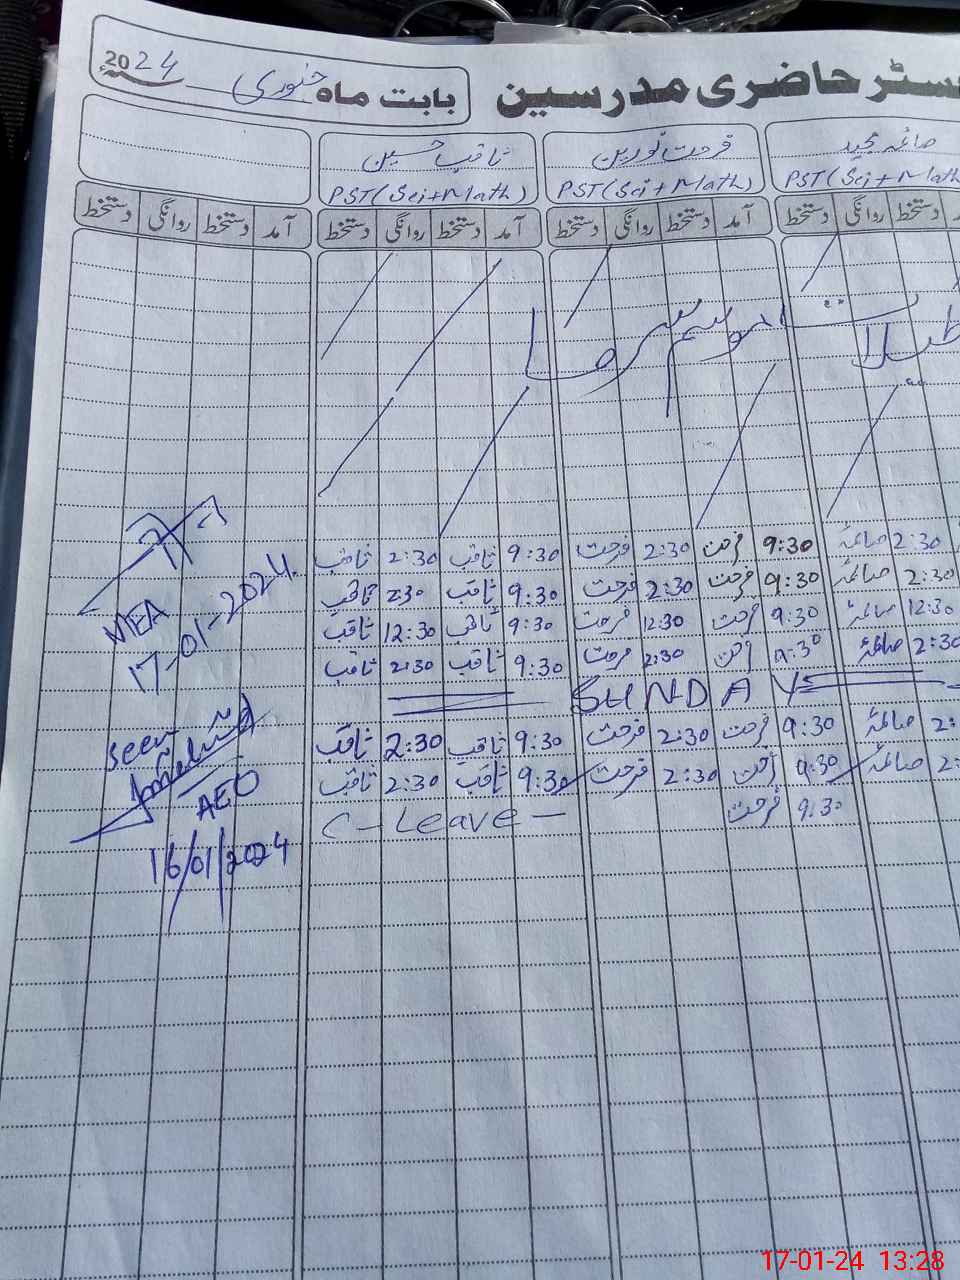 رجسٹر حاضری مدرسین بابت ماہ جنوری 2024
صائمہ مجید فرحت نورین ثاقب حسین
PST (Sci + Math) PST (Sci + Math) PST (Sci + Math)
دستخط روانگی دستخط آمد دستخط روانگی دستخط آمد دستخط روانگی دستخط آمد دستخط
تعطیلات موسم سرما
صائمہ 2:30 ثاقب 2:30 ثاقب 9:30 فرحت 2:30 فرحت 9:30
صائمہ 2:30 ثاقب 2:30 ثاقب 9:30 فرحت 2:30 فرحت 9:30
صائمہ 12:30 ثاقب 12:30 ثاقب 9:30 فرحت 12:30 فرحت 9:30
صائمہ 2:30 ثاقب 2:30 ثاقب 9:30 فرحت 2:30 فرحت 9:30
SUNDAY
صائمہ 2: ثاقب 2:30 ثاقب 9:30 فرحت 2:30 فرحت 9:30
صائمہ 2: ثاقب 2:30 ثاقب 9:30 فرحت 2:30 فرحت 9:30
C - Leave - فرحت 9:30
MEA
17-01-2024
Seen
AEO
16/01/2024
17-01-24 13:28